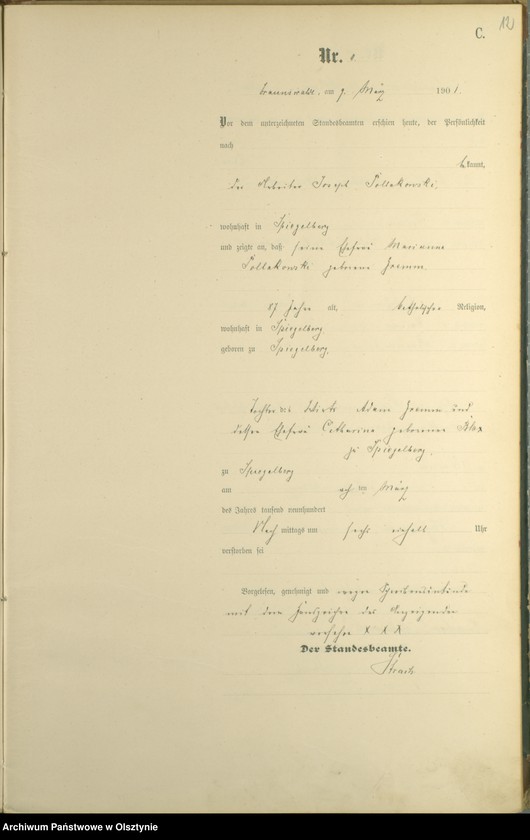 12
C.
Nr.
Braunswalde, am 9. März 1901.
Vor dem unterzeichneten Standesbeamten erschien heute, der Persönlichkeit
nach
bekannt,
der Arbeiter Joseph Pollakowski,
wohnhaft in Spiegelberg
und zeigte an, daß seine Ehefrau Marianna
Pollakowski geborene
Jahre alt, katholischer Religion,
wohnhaft in Spiegelberg
geboren zu Spiegelberg,
Tochter des Wirts Adam und
dessen Ehefrau Catharina geborener
zu Spiegelberg,
zu Spiegelberg
am acht ten März
des Jahres tausend neunhundert
Nach mittags um sechs einhalb Uhr
verstorben sei
Vorgelesen, genehmigt und wegen Schreibensunkunde
mit dem Handzeichen des Anzeigenden
versehen x x x
Der Standesbeamte.